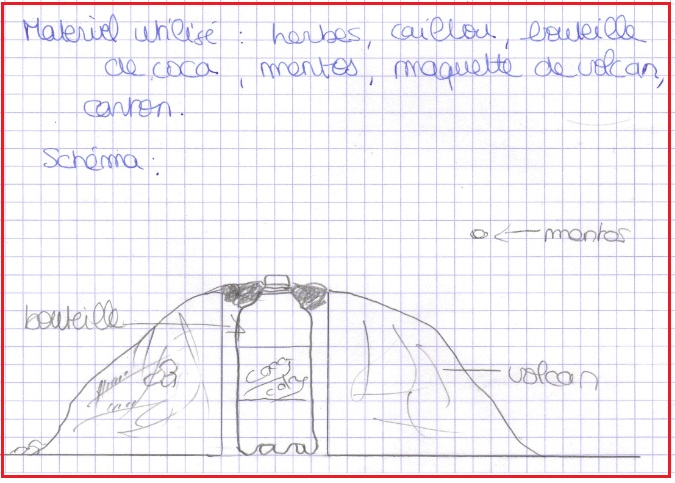 Matériel utilisé : herbes, caillou, bouteille
de coca, mentos, maquette de volcan,
carton.
Schéma :
mentos
bouteille
coca
volcan